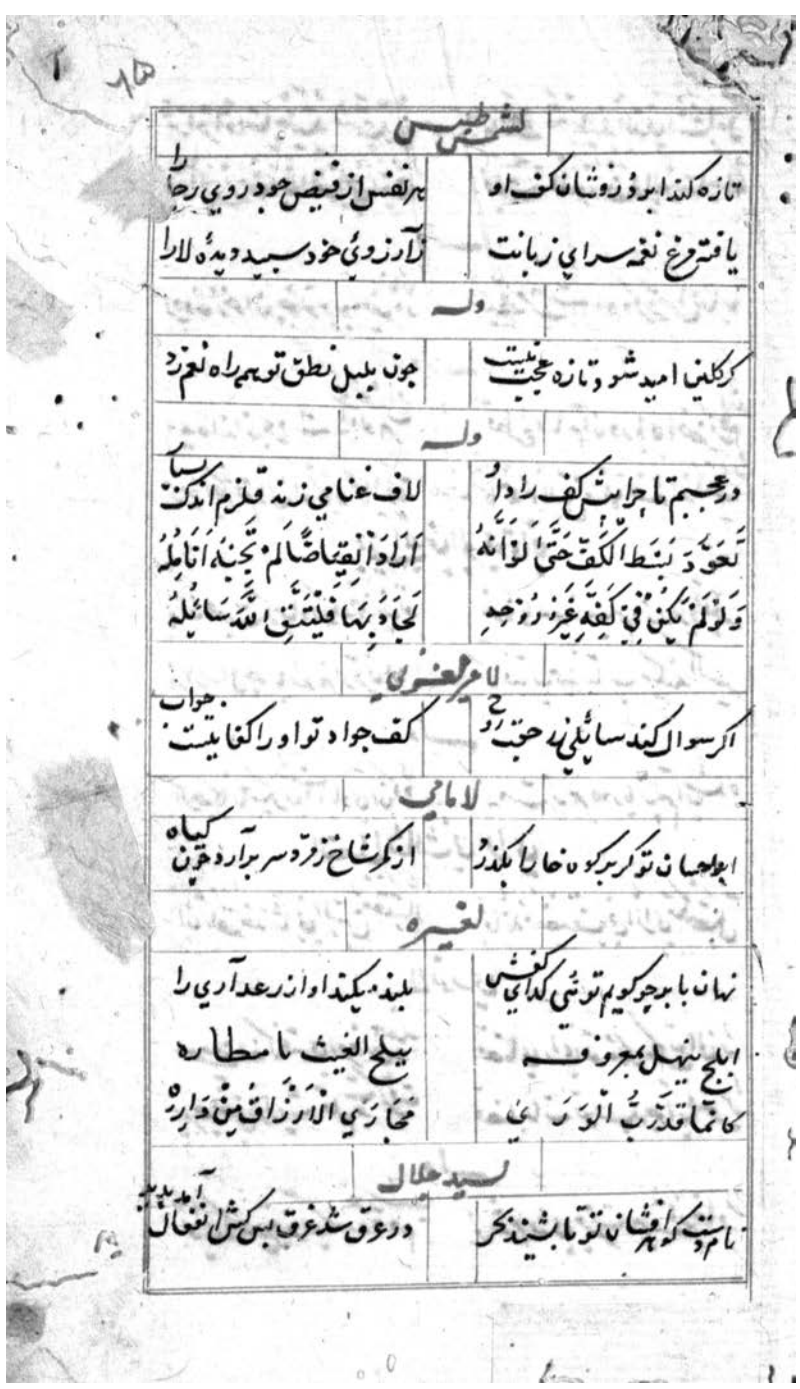 لشمس طبسی
تازه کند ابر در فشان کف او هر نفس از فیض جود روی رجا را
یافته مرغ نغمه سرای زبانت ز آرزوئ خود سپید دیدهٔ لارا
وله
کر کلبن امید شود تازه عجب نیست چون بلبل نطق تو همه راه نعم زد
وله
در عجبم تا چرا پیش کف راد او لاف غنا می زند قلزم اندک
تَعَوَّدَ بَسَطَ الْکَفِّ حَتَّی لَوْ اَنَّهُ اَرَادَ انْقِبَاضًا لَمْ تُجِبْهُ اَنَامِلُهُ
وَلَوْ لَمْ یَکُنْ فِیْ کَفِّهِ غَیْرُ رُوْحِهِ لَجَادَ بِهَا فَلْیَتَّقِ اللّٰهَ سَائِلُهُ
لامیر معزی
اکر سوال کند سایلی ز حق روح کف جواد تو او را کفایتست جواب
لامامی
ابر احسان تو کر بر کوه خارا بکذرد از کمر شاخ زمرد سر برآرد چون کیاه
لغیره
نهان با بر چو کویم تو ئی کدای کفش بلند میکند اواز رعد آری را
ابلج ینهل بمعروفه یبلج الغیث بامطاره
کانما قدر رب الوری مَجَارَیِ الْاَرْزَاقِ مِنْ دَارِهْ
لسید جلال
نام دست کوهر افشان تو تا بشنید بحر در عرق شد غرق بس کش انفعال آمد پدید